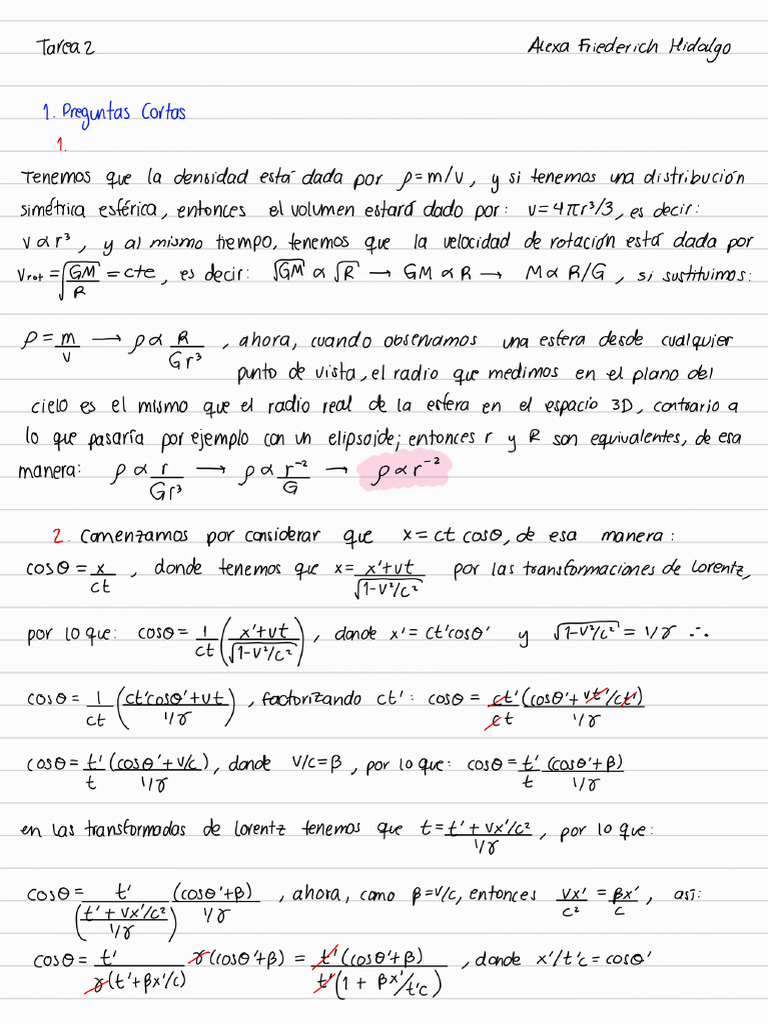 Tarea 2 Alexa Friederich Hidalgo
1. Preguntas Cortas
1.
Tenemos que la densidad está dada por ρ=m/v, y si tenemos una distribución
simétrica esférica, entonces el volumen estará dado por: v=4πr³/3, es decir:
v∝r³, y al mismo tiempo, tenemos que la velocidad de rotación está dada por
Vrot=√(GM/R)=cte, es decir: √GM ∝ √R → GM ∝ R → M∝ R/G, si sustituimos:
ρ=m/v → ρ∝ R/Gr³, ahora, cuando observamos una esfera desde cualquier
punto de vista, el radio que medimos en el plano del
cielo es el mismo que el radio real de la esfera en el espacio 3D, contrario a
lo que pasaría por ejemplo con un elipsoide; entonces r y R son equivalentes, de esa
manera: ρ∝ r/Gr³ → ρ∝ r⁻²/G → ρ∝r⁻²
2. Comenzamos por considerar que x=ct cosθ, de esa manera:
cosθ=x/ct, donde tenemos que x=(x'+vt)/√(1-v²/c²) por las transformaciones de Lorentz,
por lo que: cosθ=1/ct((x'+vt)/√(1-v²/c²)), donde x'=ct'cosθ' y √(1-v²/c²)=1/γ ∴
cosθ=1/ct((ct'cosθ'+vt)/(1/γ)), factorizando ct': cosθ=ct'(cosθ'+vt'/ct')/ct 1/γ
cosθ=t'(cosθ'+v/c)/t 1/γ, donde v/c=β, por lo que: cosθ=t'/t (cosθ'+β)/(1/γ)
en las transformadas de Lorentz tenemos que t=(t'+vx'/c²)/(1/γ), por lo que:
cosθ=t'/((t'+vx'/c²)/(1/γ)) (cosθ'+β)/(1/γ), ahora, como β=v/c, entonces vx'/c²=βx'/c, así:
cosθ=t'/γ(t'+βx'/c) γ(cosθ'+β) = t'(cosθ'+β)/t'(1+βx'/t'c), donde x'/t'c=cosθ'